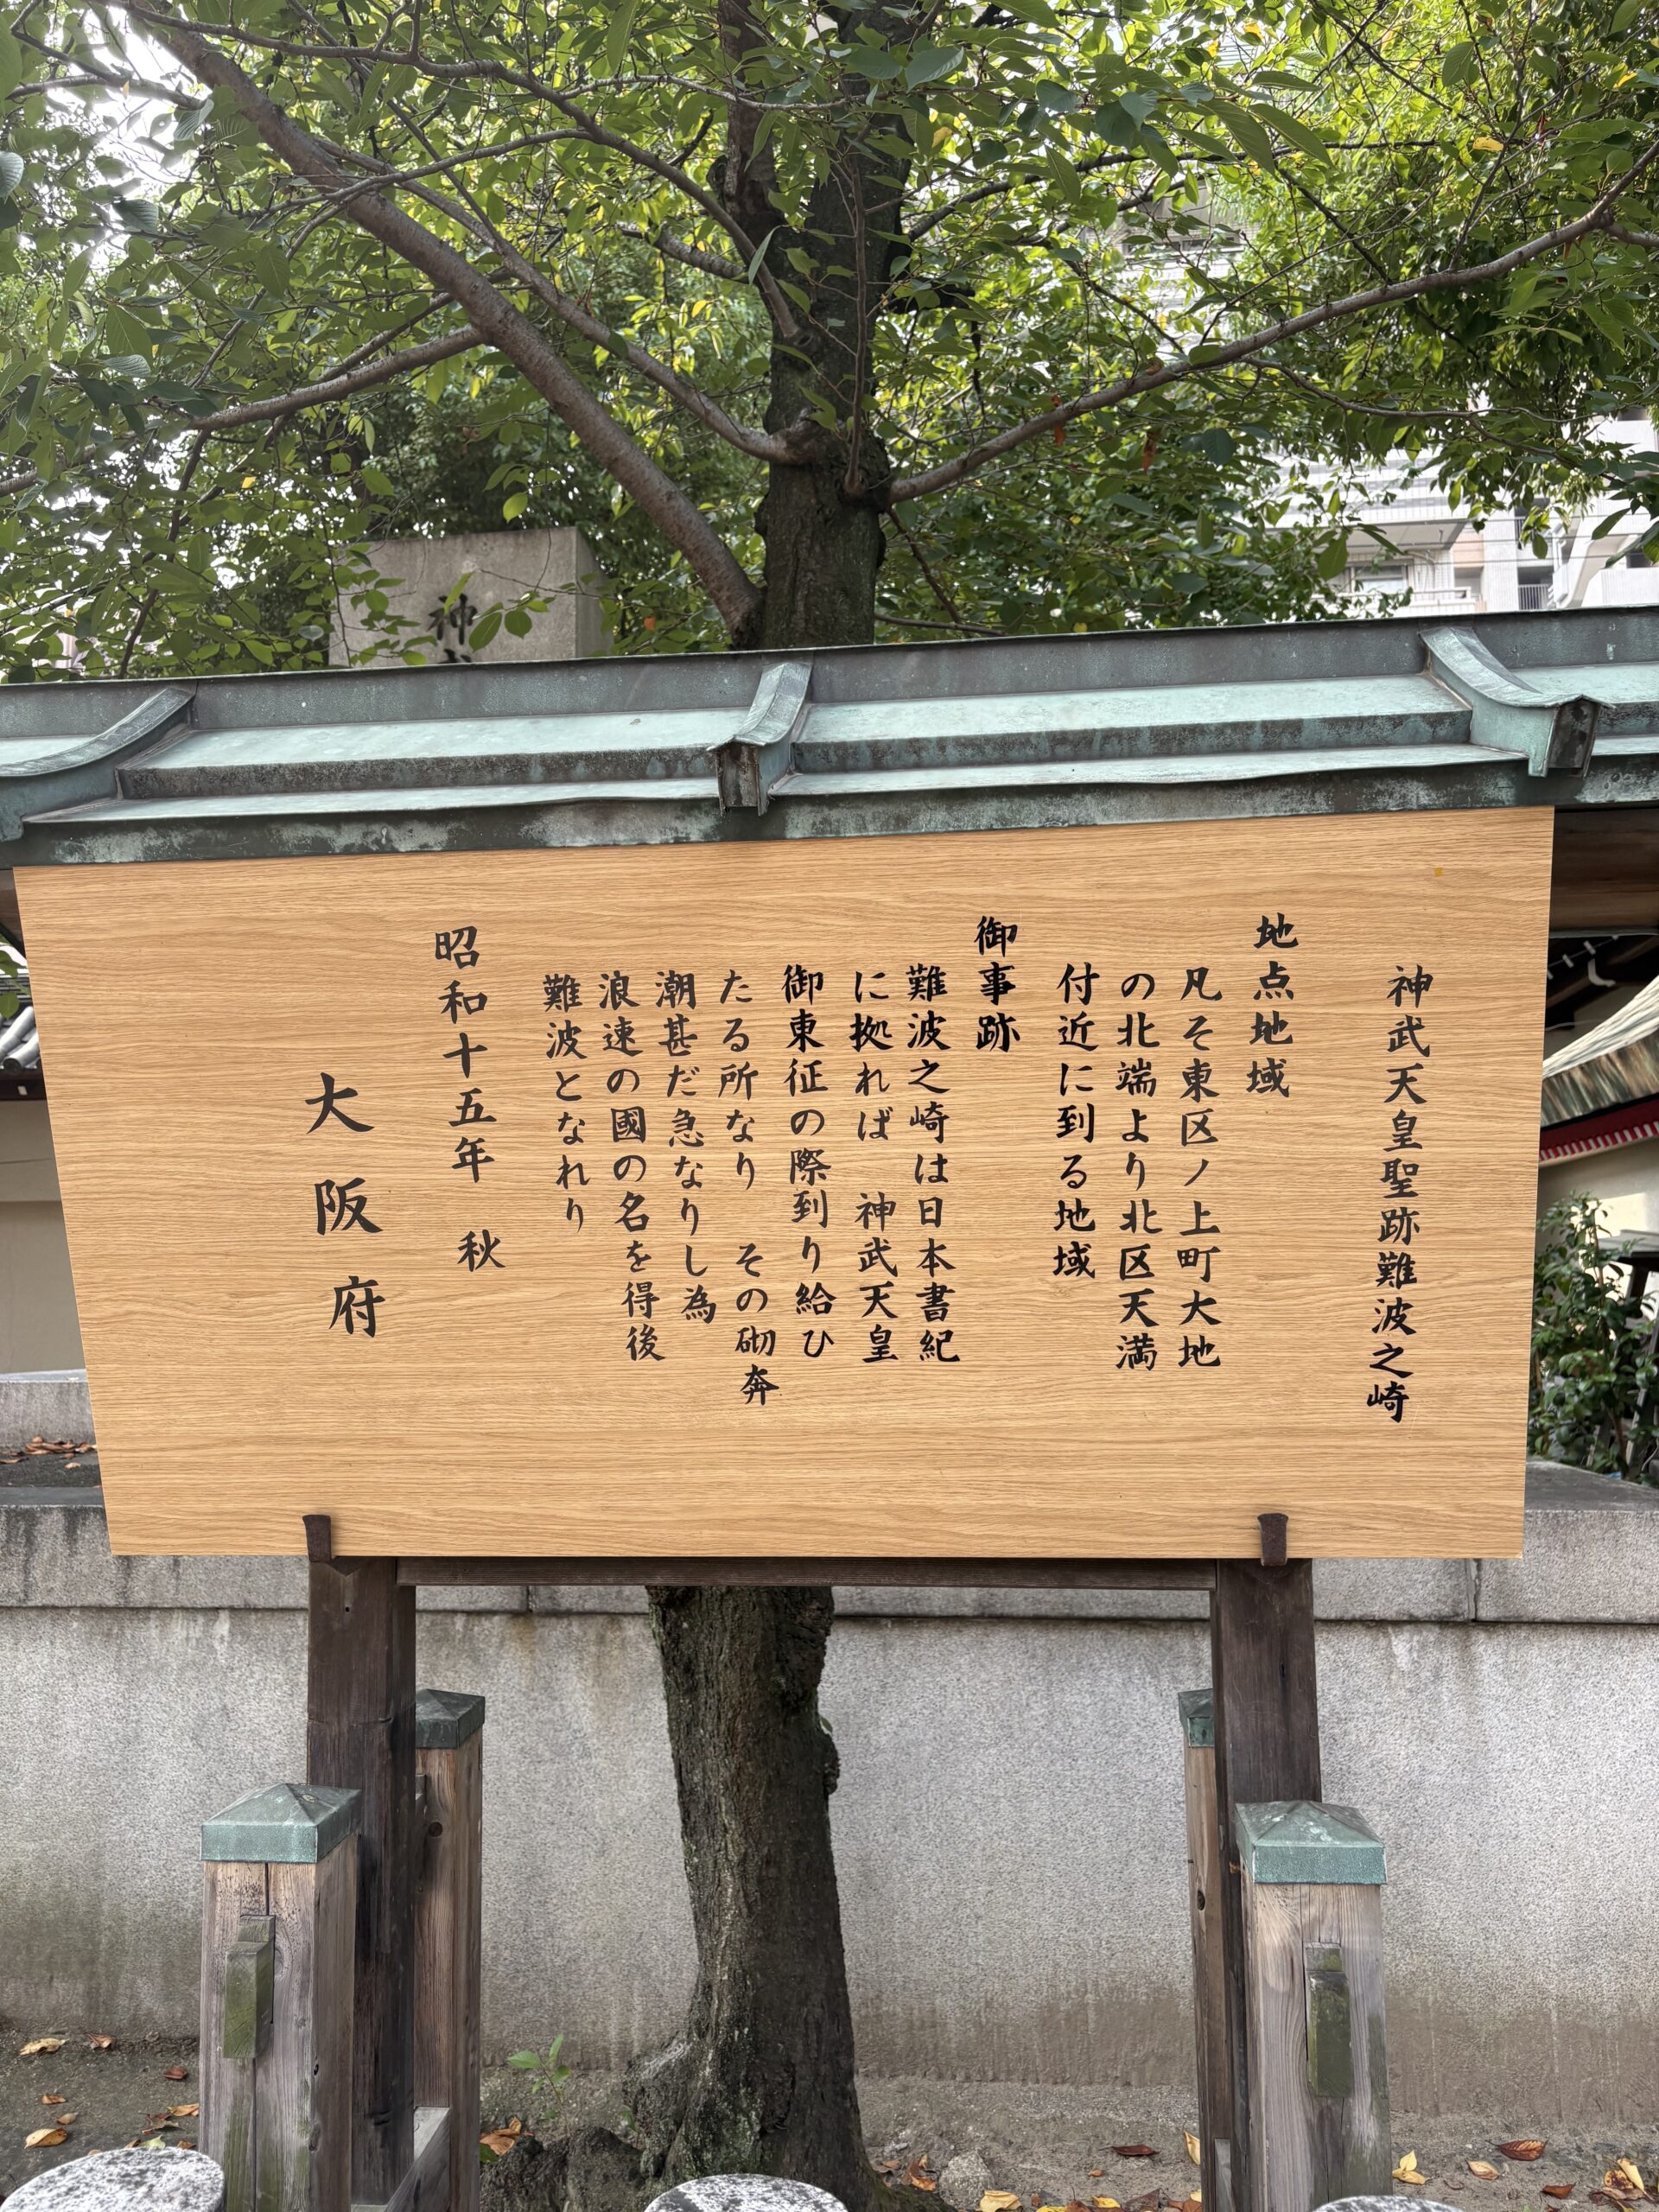 神武天皇聖跡難波之崎
地点地域
凡そ東区ノ上町大地
の北端より北区天満
付近に到る地域
御事跡
難波之崎は日本書紀
に拠れば 神武天皇
御東征の際到り給ひ
たる所なり その砌奔
潮甚だ急なりし為
浪速の國の名を得後
難波となれり
昭和十五年 秋
大阪府
神